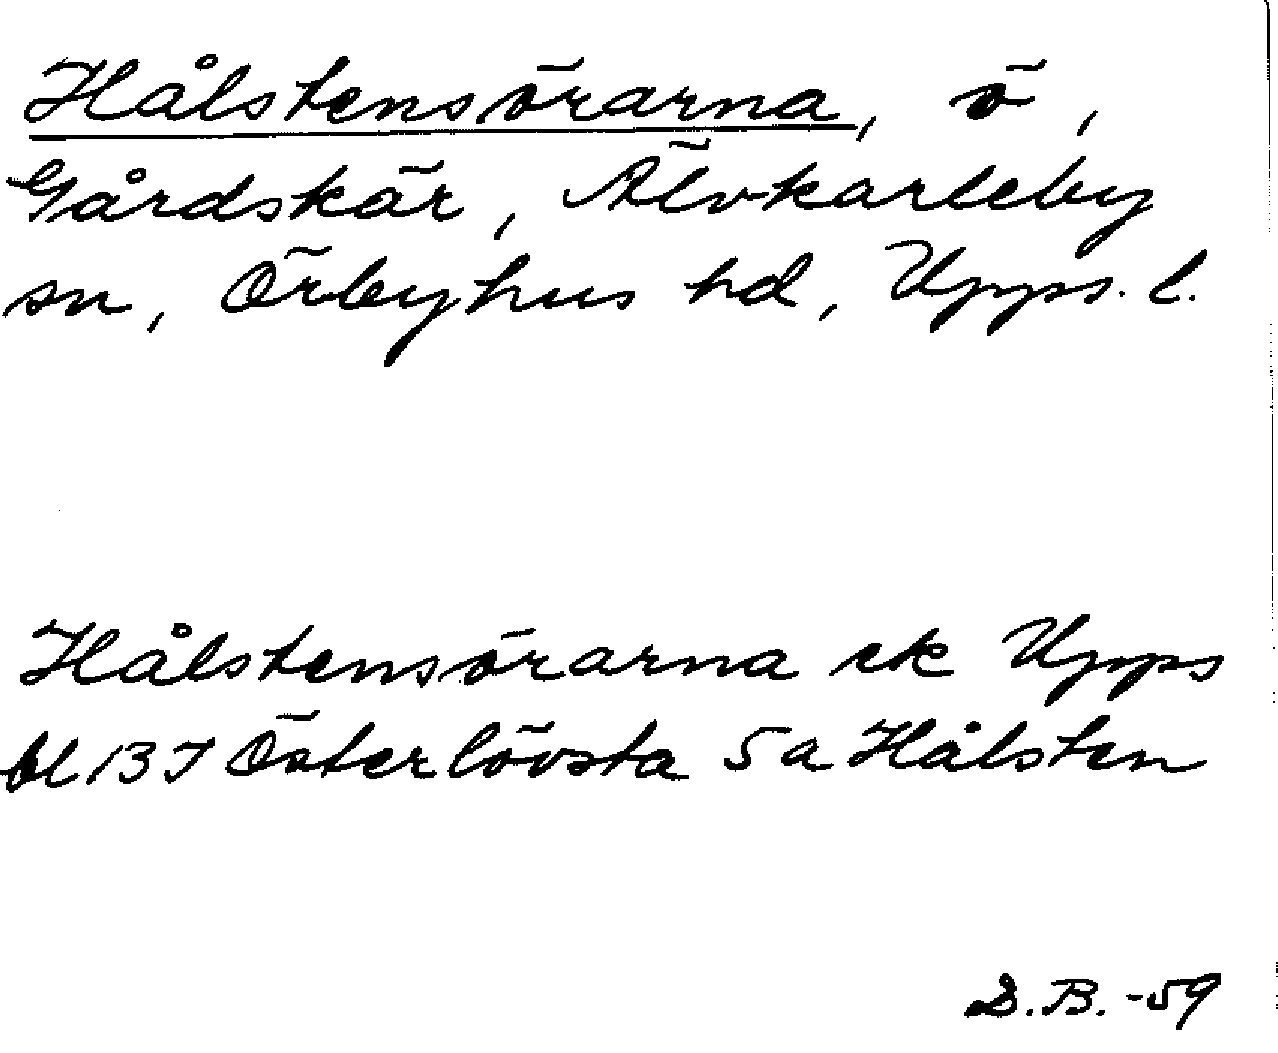 Hålstensörarna, ö,
Gårdskär, Älvkarleby
sn, Örbyhus hd, Upps. l.
Hålstensörarna ek Upps
bl 13 I Österlövsta 5 a Hålsten
D.B. -59